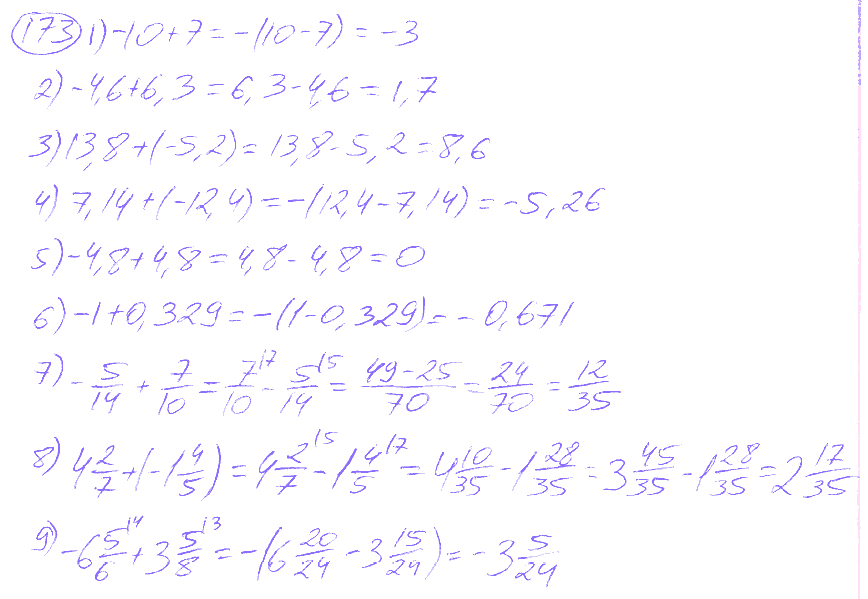 173 1) -10+7=-(10-7)=-3
2) -4,6+6,3=6,3-4,6=1,7
3) 13,8+(-5,2)=13,8-5,2=8,6
4) 7,14+(-12,4)=-(12,4-7,14)=-5,26
5) -4,8+4,8=4,8-4,8=0
6) -1+0,329=-(1-0,329)=-0,671
7) -5/14+7/10=7/10^{17}-5/14^{15}=49-25/70=24/70=12/35
8) 4 2/7+(-1 4/5)=4 2/7^{15}-1 4/5^{17}=4 10/35-1 28/35=3 45/35-1 28/35=2 17/35
9) -6 5/6^{14}+3 5/8^{13}=-(6 20/24-3 15/24)=-3 5/24